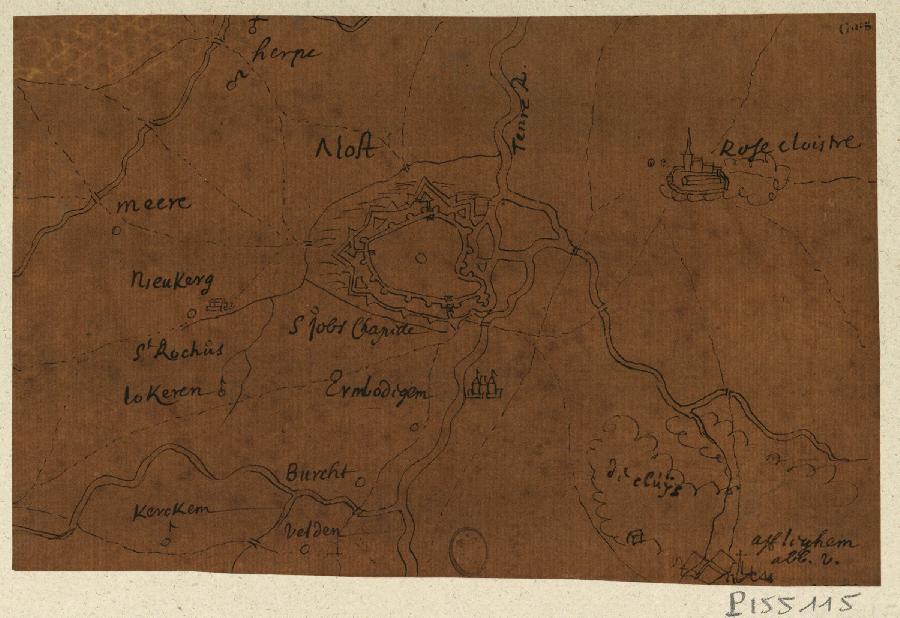 herpe
Tenre R.
Alost
Rose cloistre
meere
Nieukerg
St Jobs Chapide
St Rochus
lokeren
Ermbodigem
Burcht
die cluys
Kerckem
Velden
afflighem
abb. v.
P155115